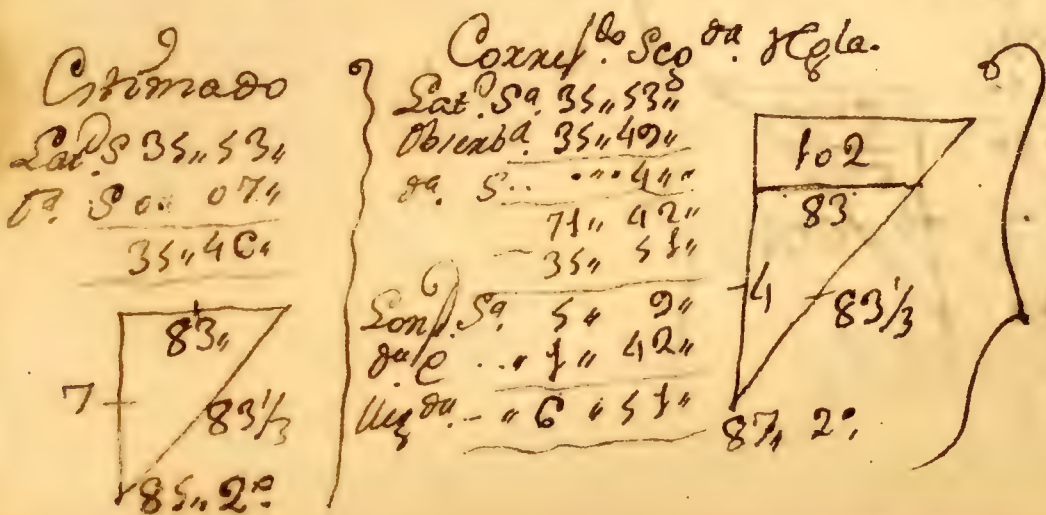 Estimado
Lat.ᵈ Sᵃ 35,, 53,,
07,,
35,, 46,,
83,,
7
83 1/3
85,, 2º
Correg.ᵈᵒ Seg.ᵈᵃ Regla.
Lat.ᵈ Sᵃ. 35,, 53,,
Obserbᵃ. 35,, 49,,
dᵃ. S.. ,,.. 4,,
71,, 42,,
35,, 51,,
Long. Sᵃ. 5,, 9,,
dᵃ E ..,, 1,, 42,,
Lleg.ᵈᵃ - ,, 6 ,, 51,,
102
83
4
83 1/3
87,, 2º